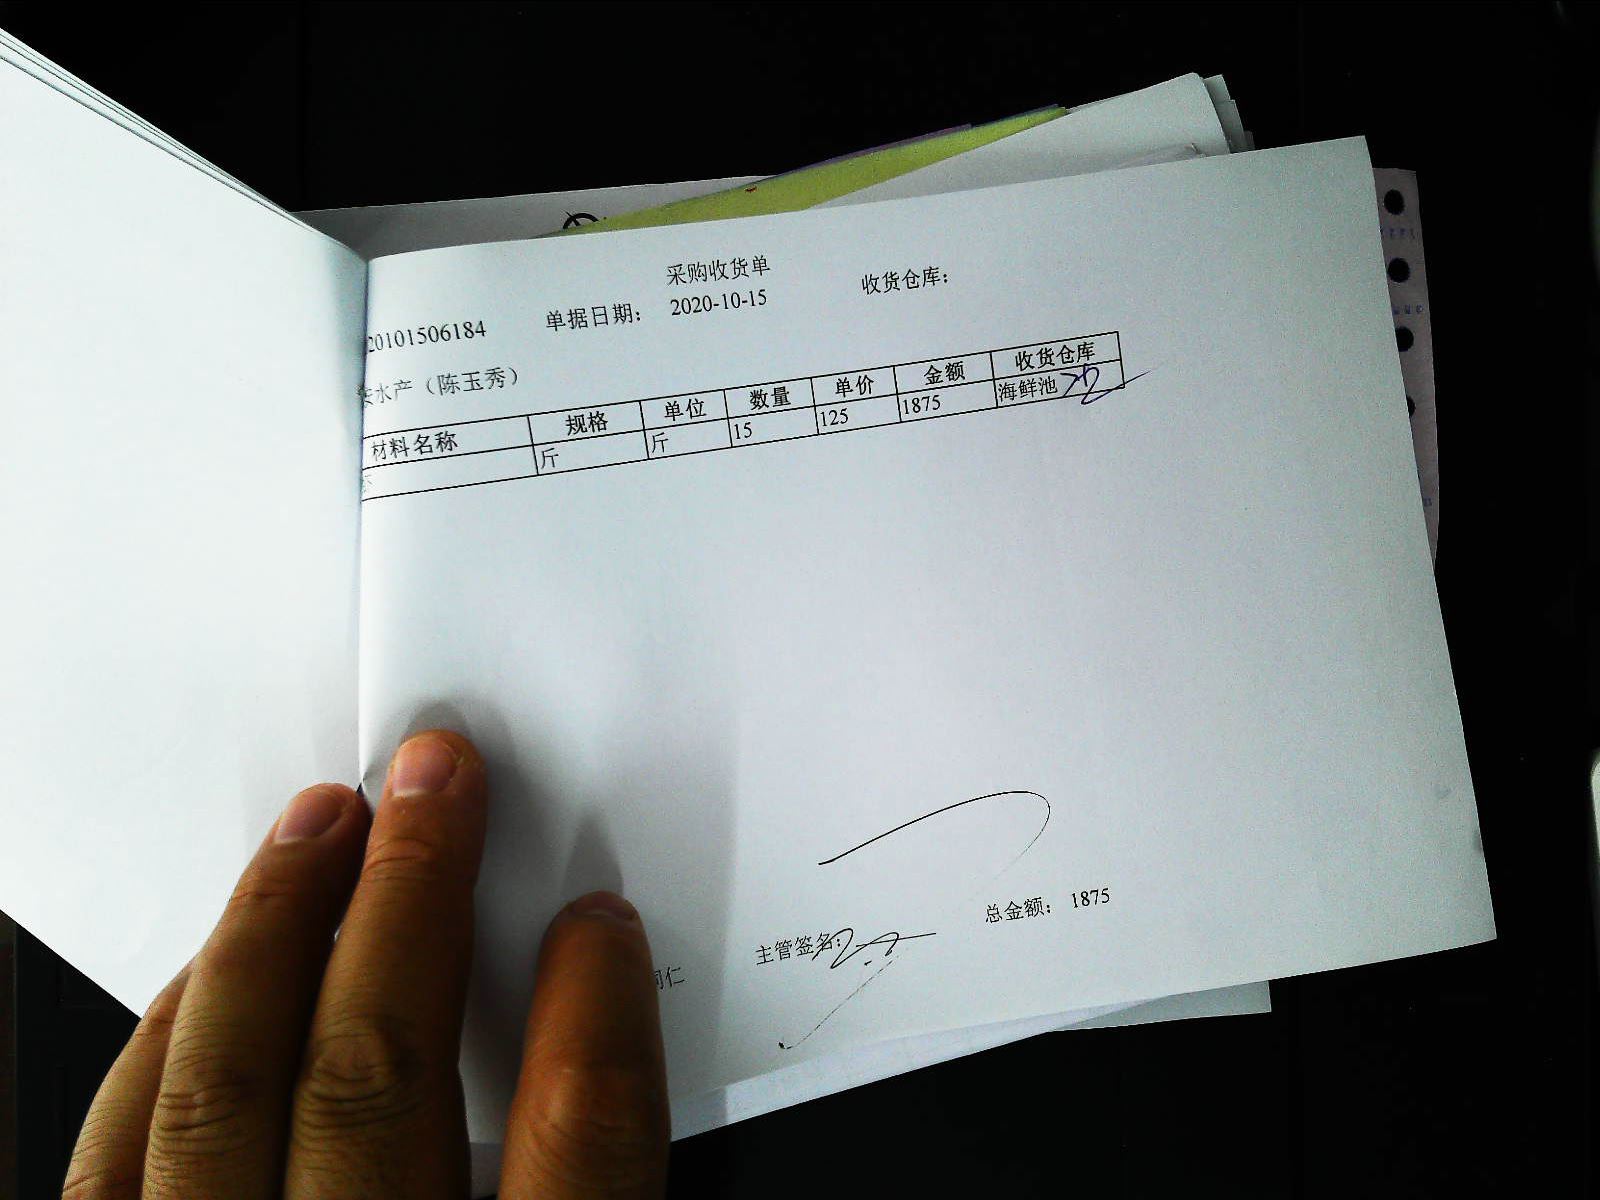 采购收货单
20101506184 单据日期： 2020-10-15 收货仓库：
水产（陈玉秀）
材料名称 规格 单位 数量 单价 金额 收货仓库
斤 斤 15 125 1875 海鲜池
总金额： 1875
主管签名:
同仁